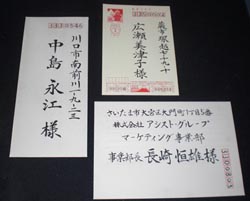 川口市南前川一ー九ー二三
中島永江様
蕨市塚越七ー九ー十
広瀬美津子様
さいたま市大宮区大門町1丁目5番
株式会社アシスト・グループ
マーケティング事業部
事業部長 長崎恒雄様